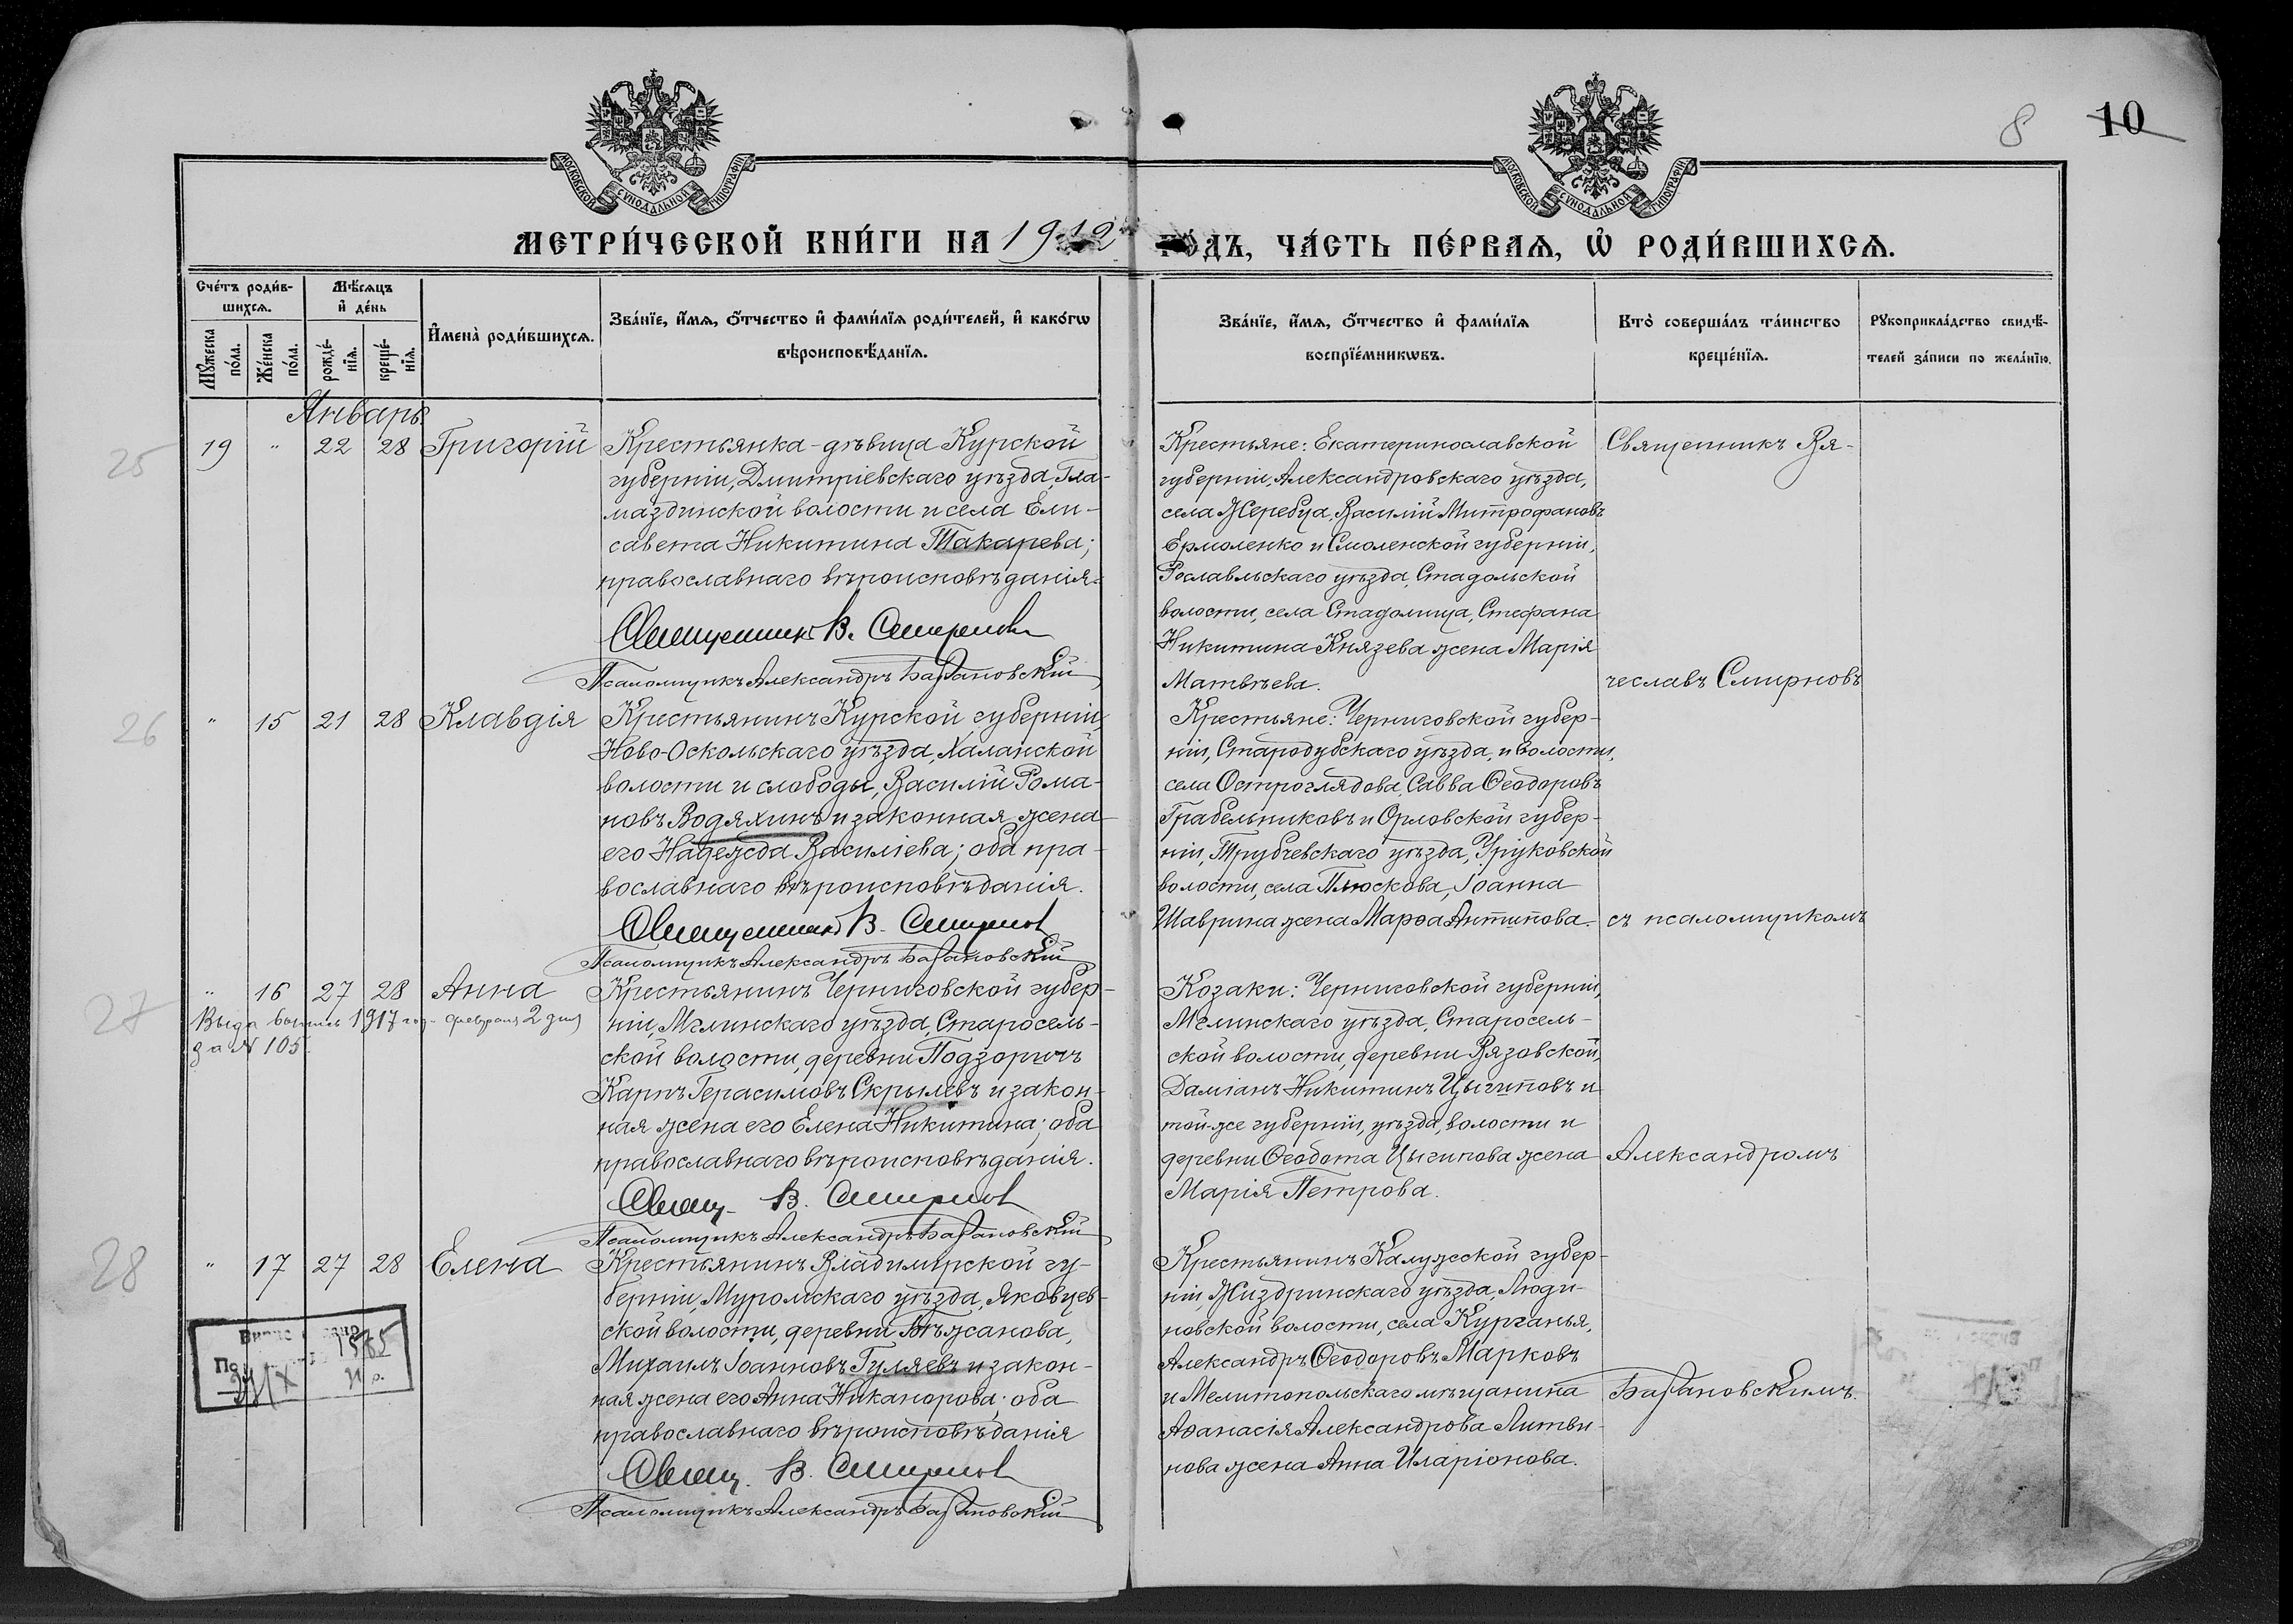 8 10
МОСКОВСКОЙ СѴНОДАЛЬНОЙ ТИПОГРАФІИ
МОСКОВСКОЙ СѴНОДАЛЬНОЙ ТИПОГРАФІИ
МЕТРИ́ЧЕСКОЙ КНИ́ГИ НА 1912
ГО́ДЪ, ЧА́СТЬ ПЕ́РВАѦ, Ѡ РОДИ́ВШИХСѦ.
Сче́тъ роди́в-
шихсѧ.
Мꙋ́жеска
по́ла.
Же́нска
по́ла.
Мѣ́сѧцъ
и҆ де́нь
рожде́-
нїѧ.
креще́-
нїѧ.
И҆мена̀ роди́вшихсѧ.
Зва́нїе, и҆́мѧ, ѻ҆́тчество и҆ фами́лїѧ роди́телей, и҆ како́гѡ
вѣроисповѣ́данїѧ.
Зва́нїе, и҆́мѧ, ѻ҆́тчество и҆ фами́лїѧ
воспрїе́мникѡвъ.
Кто̀ соверша́лъ та́инство
креще́нїѧ.
Рꙋкоприкла́дство свидѣ́-
телей за́писи по жела́нїю.
Январь.
25 19 " 22 28 Григорій
Крестьянка-дѣвица Курской
губерніи, Дмитріевскаго уѣзда, Гла-
маздинской волости и села Ели-
савета Никитина Такарева;
православнаго вѣроисповѣданія.
Священникъ В. Смирновъ
Псаломщикъ Александръ Барановскій
Крестьяне: Екатеринославской
губерніи, Александровскаго уѣзда,
села Жеребца, Василій Митрофановъ
Ермоленко и Смоленской губерніи,
Рославльскаго уѣзда, Стадольской
волости, села Стадолища, Стефана
Никитина Князева жена Марія
Матвѣева.
Священникъ Вя-
чеславъ Смирновъ
26 " 15 21 28 Клавдія
Крестьянинъ Курской губерніи,
Ново-Оскольскаго уѣзда, Халанской
волости и слободы, Василій Рома-
новъ Водяхинъ и законная жена
его Надежда Василіева; оба пра-
вославнаго вѣроисповѣданія.
Священникъ В. Смирнов
Псаломщикъ Александръ Барановскій
Крестьяне: Черниговской губер-
ніи, Стародубскаго уѣзда, и волости,
села Остроглядова, Савва Ѳеодоровъ
Грабельниковъ и Орловской губер-
ніи, Трубчевскаго уѣзда, Уруковской
волости, села Плюскова, Іоанна
Шаврина жена Марѳа Антипова.
съ псаломщикомъ
27 " 16 27 28 Анна
Выда выпись 1917 год. февраля 2 дня
за № 105
Крестьянинъ Черниговской губер-
ніи, Мглинскаго уѣзда, Старосель-
ской волости, деревни Подзоричъ
Карпъ Герасимовъ Скрылевъ и закон-
ная жена его Елена Никитина; оба
православнаго вѣроисповѣданія.
Свящ. В. Смирнов
Псаломщикъ Александръ Барановскій
Козаки: Черниговской губерніи,
Мглинскаго уѣзда, Старосель-
ской волости, деревни Вязовской,
Даміанъ Никитинъ Цыгиповъ и
той-же губерніи, уѣзда, волости и
деревни Ѳеодота Цыгипова жена
Марія Петрова.
Александромъ
28 " 17 27 28 Елена
1585
Крестьянинъ Владимірской гу-
берніи, Муромскаго уѣзда, Яковцев-
ской волости, деревни Бѣжанова,
Михаилъ Іоанновъ Гуляевъ и закон-
ная жена его Анна Никанорова; оба
православнаго вѣроисповѣданія
Свящ. В. Смирнов
Псаломщикъ Александръ Барановскій
Крестьянинъ Калужской губер-
ніи, Жиздринскаго уѣзда, Люди-
новской волости, села Курганья,
Александръ Ѳеодоровъ Марковъ
и Мелитопольскаго мѣщанина
Аѳанасія Александрова Литви-
нова жена Анна Иларіонова.
Барановскимъ.